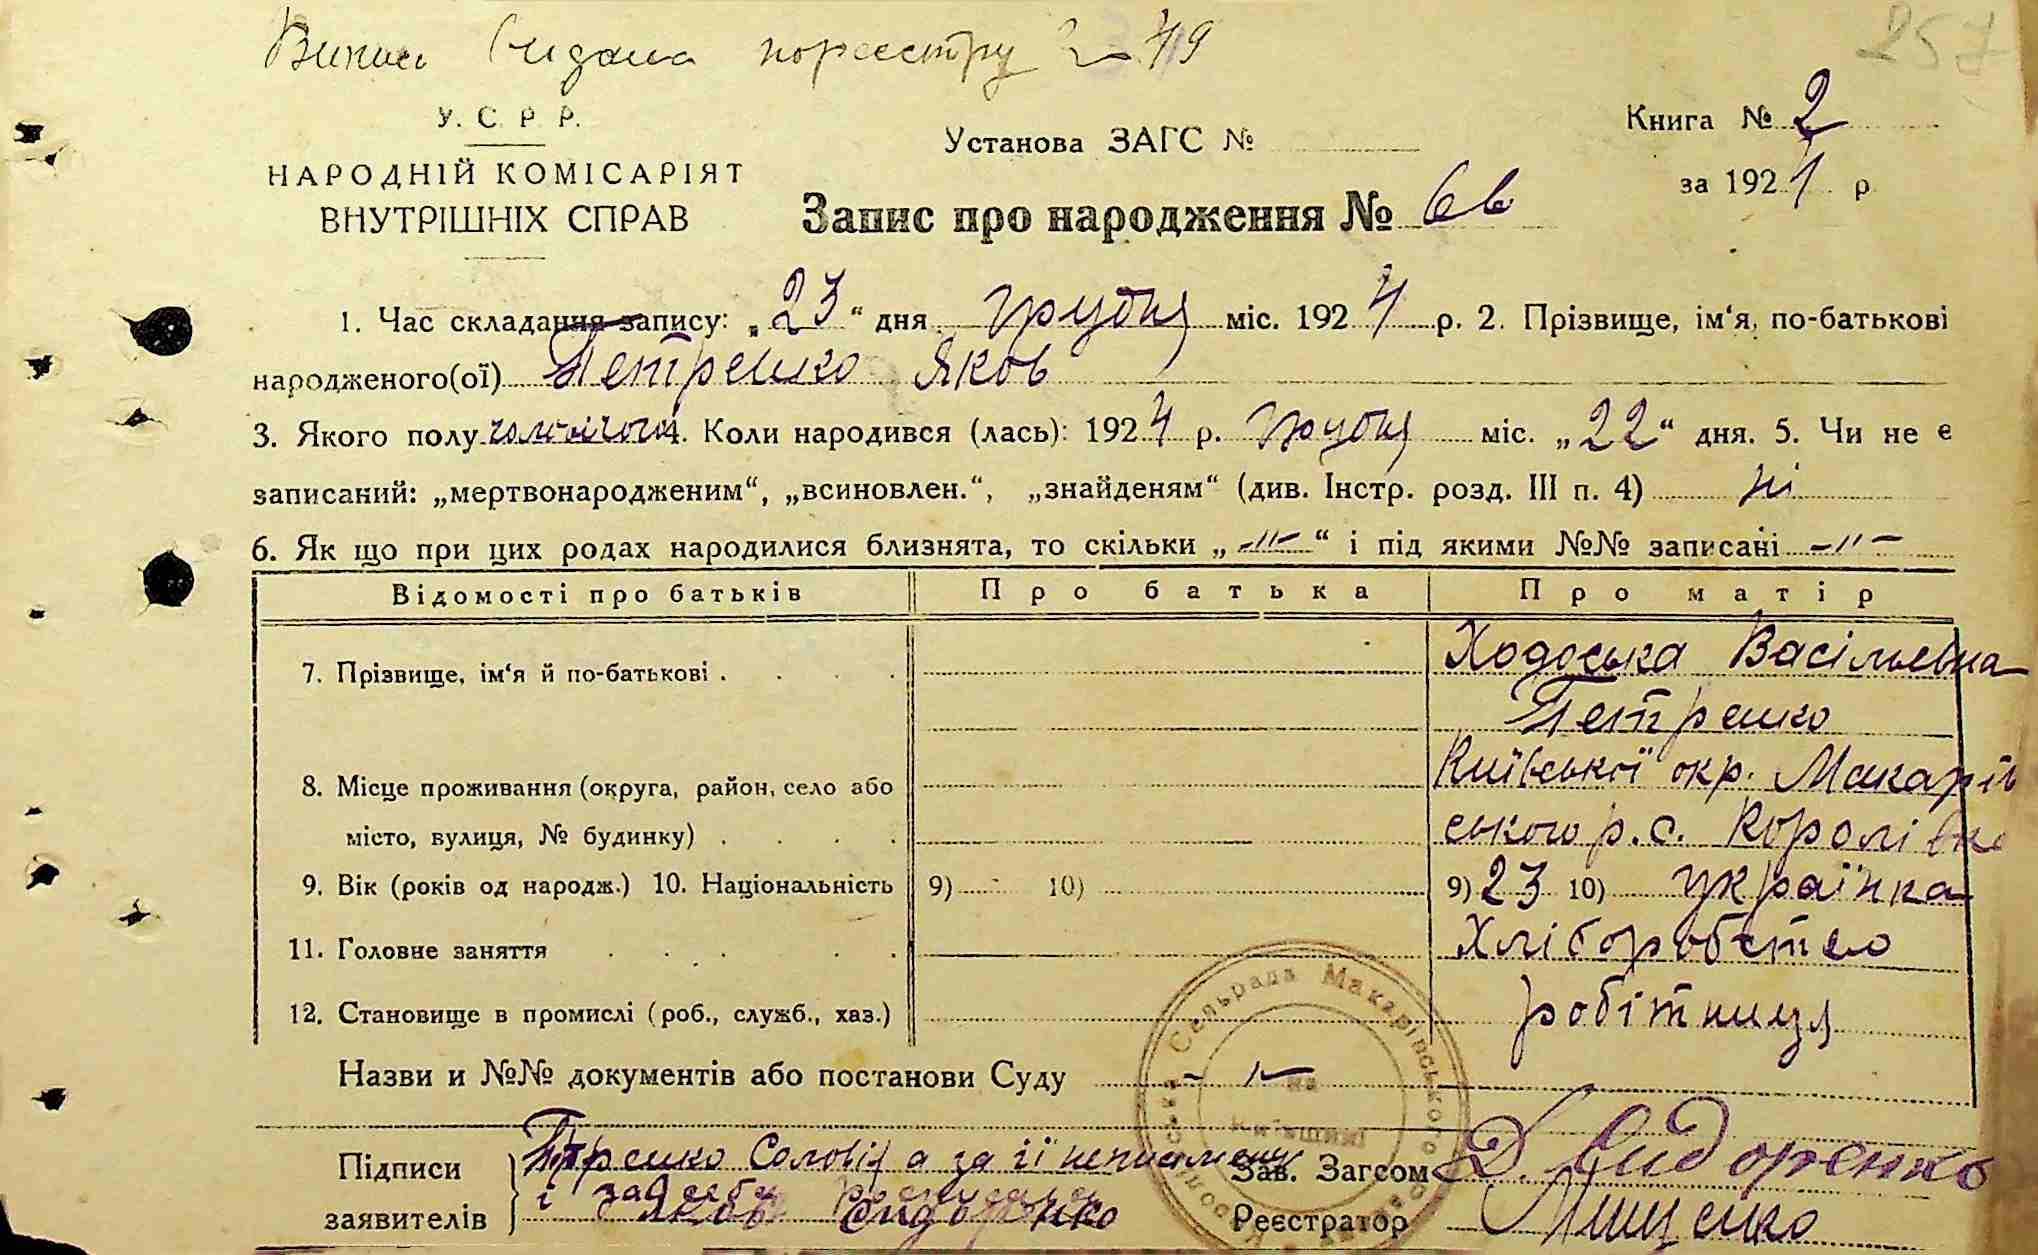 257
Випись видана по реєстру 2 49
У. С. Р. Р.
НАРОДНІЙ КОМІСАРІЯТ
ВНУТРІШНІХ СПРАВ
Установа ЗАГС №
Книга № 2
за 1924 р
Запис про народження №
1. Час складання запису: „23“ дня грудня міс. 1924 р. 2. Прізвище, ім‘я, по-батькові
народженого(ої) Петренко Яков
3. Якого полу чоловічого 4. Коли народився (лась): 1924 р. грудня міс. „22“ дня. 5. Чи не є
записаний: „мертвонародженим“, „всиновлен.“, „знайденям“ (див. Інстр. розд. III п. 4) ні
6. Як що при цих родах народилися близнята, то скільки „-„-“ і під якими №№ записані -„-
Відомості про батьків Про батька Про матір
7. Прізвище, ім‘я й по-батькові . Ходоська Васільевна
Петренко
8. Місце проживання (округа, район, село або Київської окр. Макарів
місто, вулиця, № будинку) . ського р. с. Королівка
9. Вік (років од народж.) 10. Національність 9) 10) 9) 23 10) українка
11. Головне заняття Хліборобство
12. Становище в промислі (роб., служб., хаз.) робітниця
Назви и №№ документів або постанови Суду
Сельрада Макарівського
на
Київщині
Підписи Петренко а за її неписьмену
заявителів і за себе
Яков Сидоренко
Зав. Загсом Д. Сидоренко
Реєстратор Мищенко